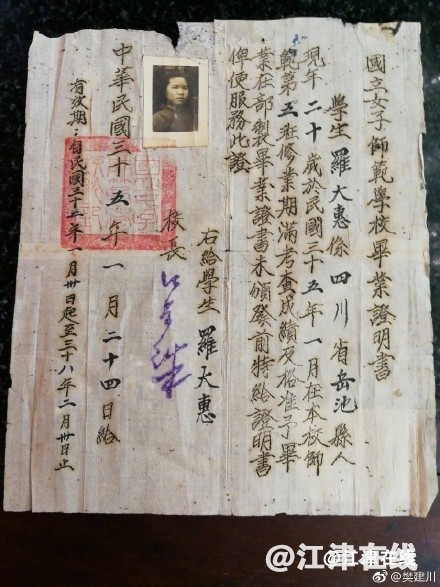 國立女子師範學校畢業證明書
學生羅大惠係四川省岳池縣人
現年二十歲於民國三十五年一月在本校師
範第五班修業期滿考查成績及格准予畢
業在部製畢業證書未頒發前特給證明書
俾便服務此證
右給學生羅大惠
校長
中華民國三十五年一月二十四日給
有效期:自民國三十五年一月卅日起至三十八年二月卅日止
@江津在线
@江津在线
@樊建川